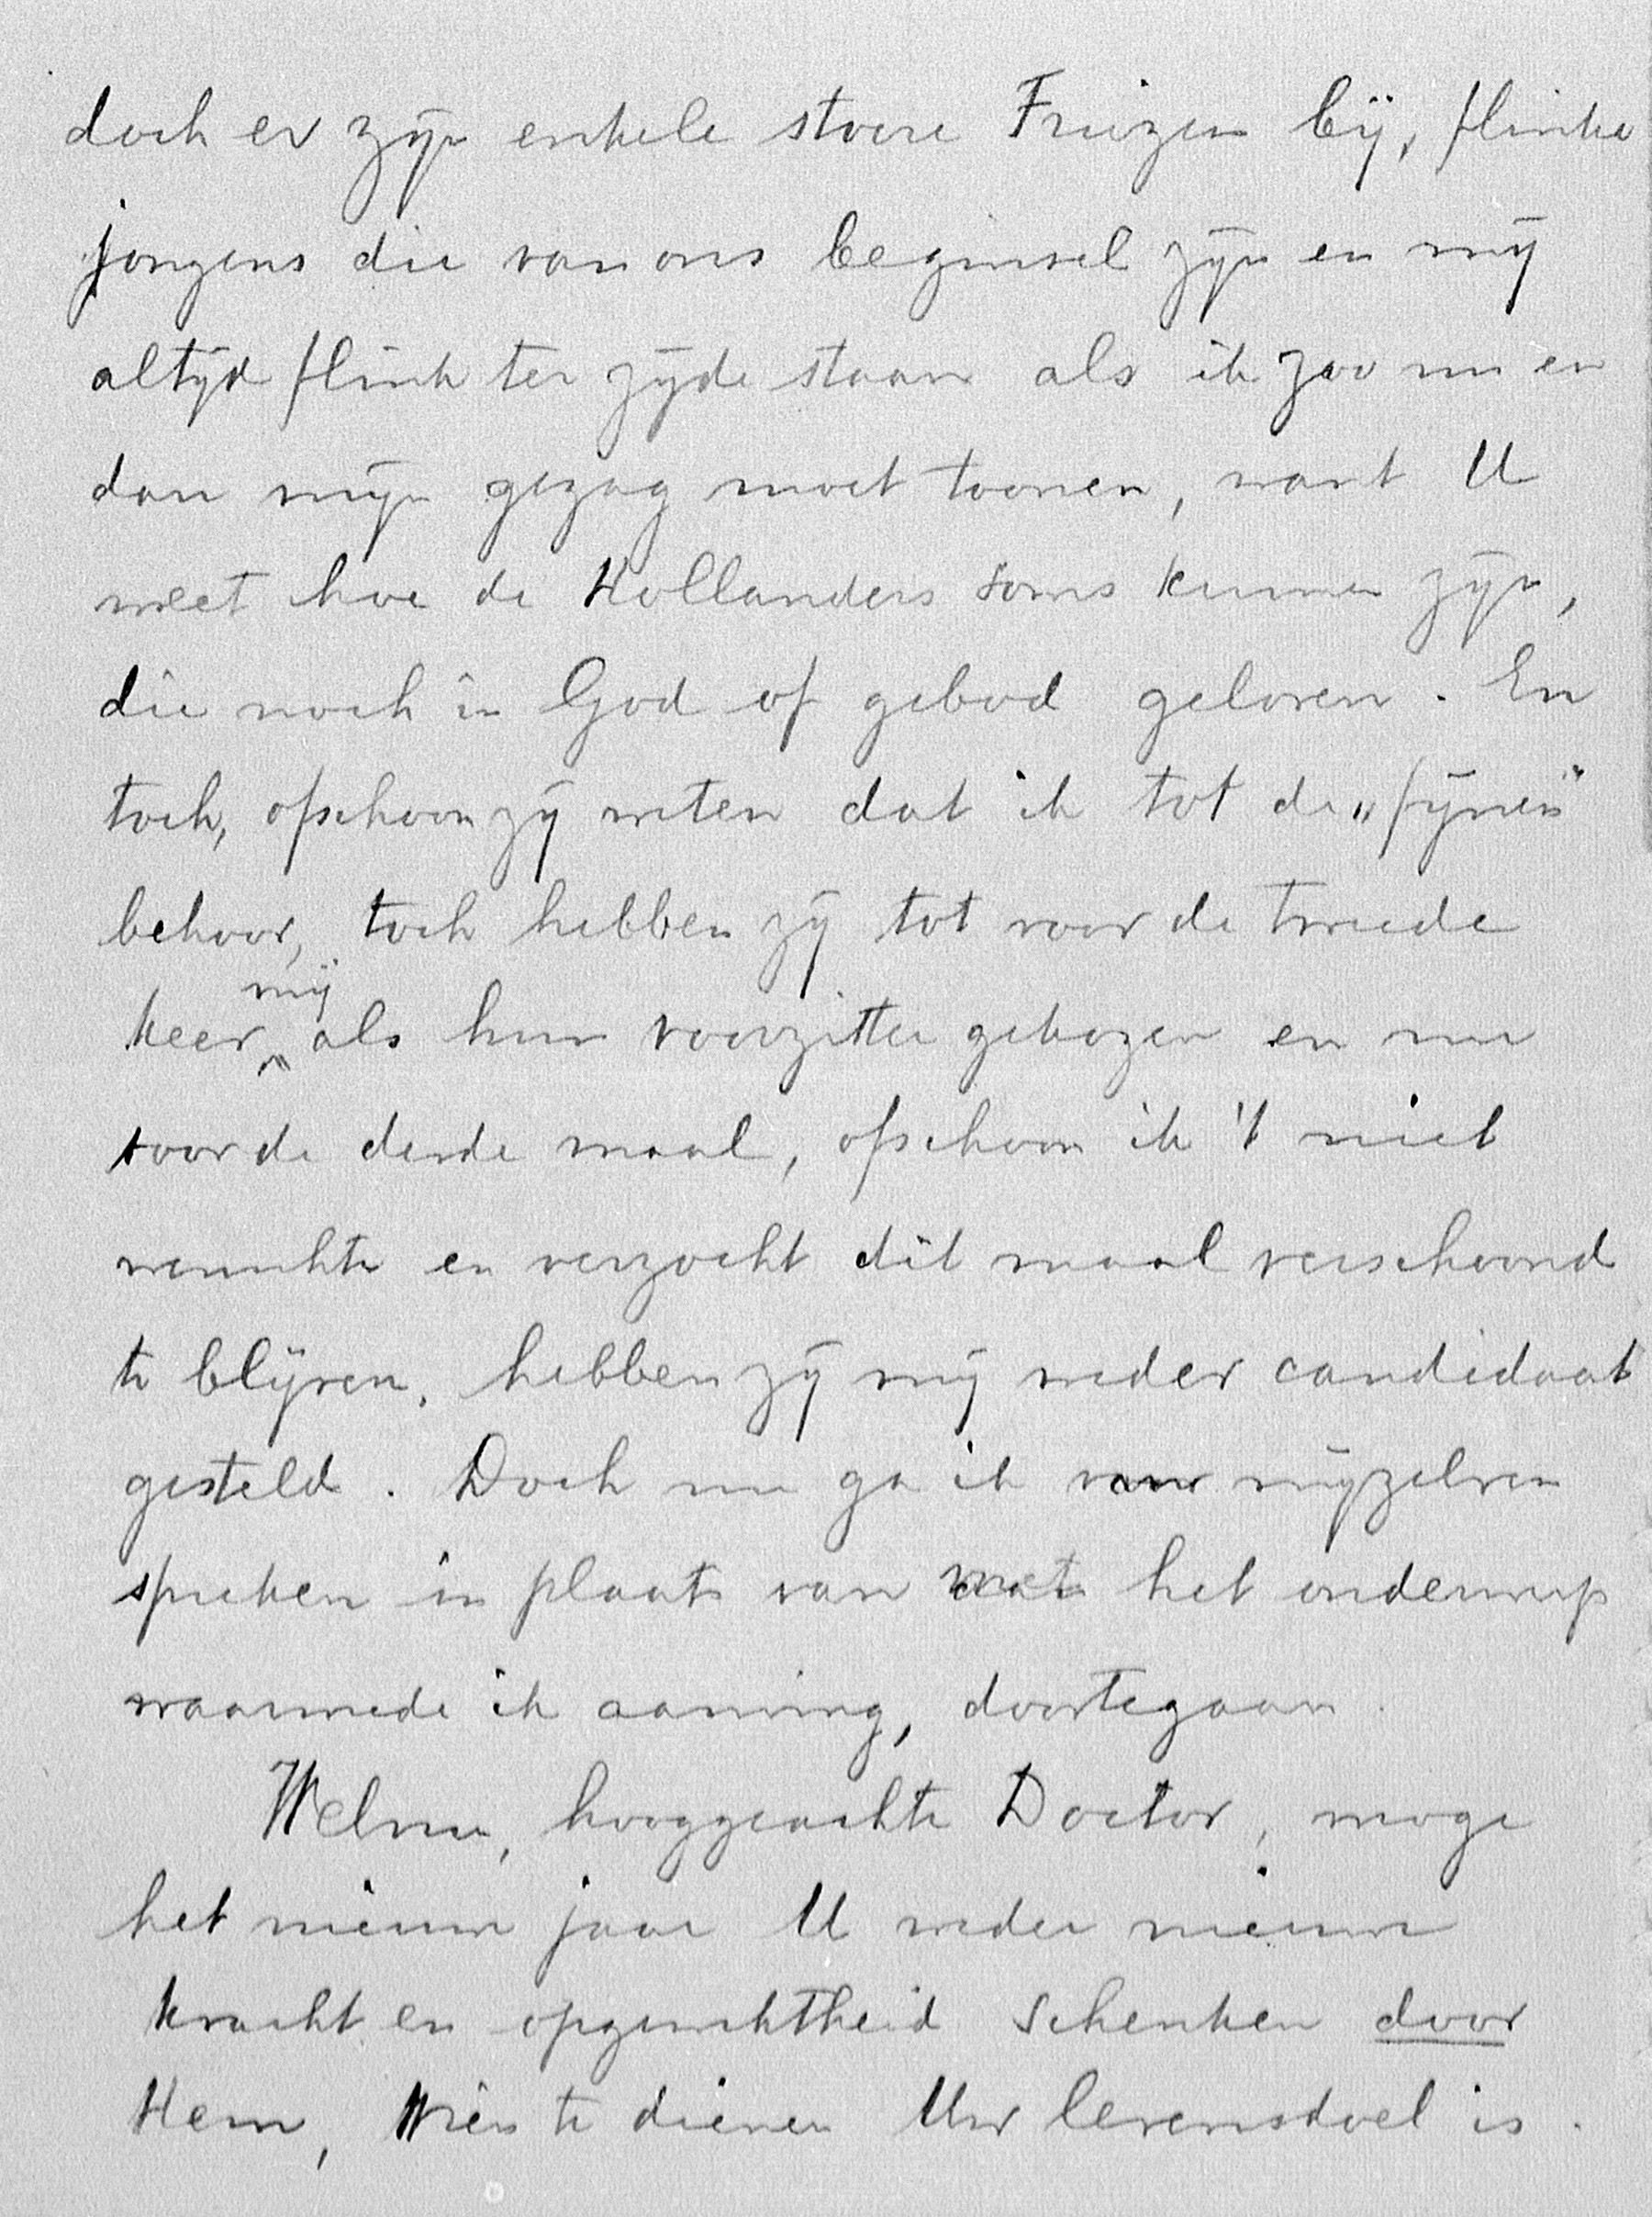 doch er zijn enkele stoere Friezen bij, flinke
jongens die van ons beginsel zijn en mij
altijd flink ter zijde staan als ik zoo nu en
dan mijn gezag moet toonen, want U
weet hoe de Hollanders soms kunnen zijn,
die noch in God of gebod gelooven. En
toch, ofschoon zij weten dat ik tot de „fijnen"
behoor, toch hebben zij tot voor de tweede
keer mij als hun voorzitter gekozen en nu
voor de derde maal, ofschoon ik 't niet
wenschte en verzocht dit maal verschoond
te blijven, hebben zij mij weder candidaat
gesteld. Doch nu ga ik van mijzelven
spreken in plaats van met het onderwerp
waarmede ik aanving, doortegaan.
Welnu, hooggeachte Doctor, moge
het nieuwe jaar U weder nieuwe
kracht en opgewektheid schenken door
Hem, Wien te dienen Uw levensdoel is.